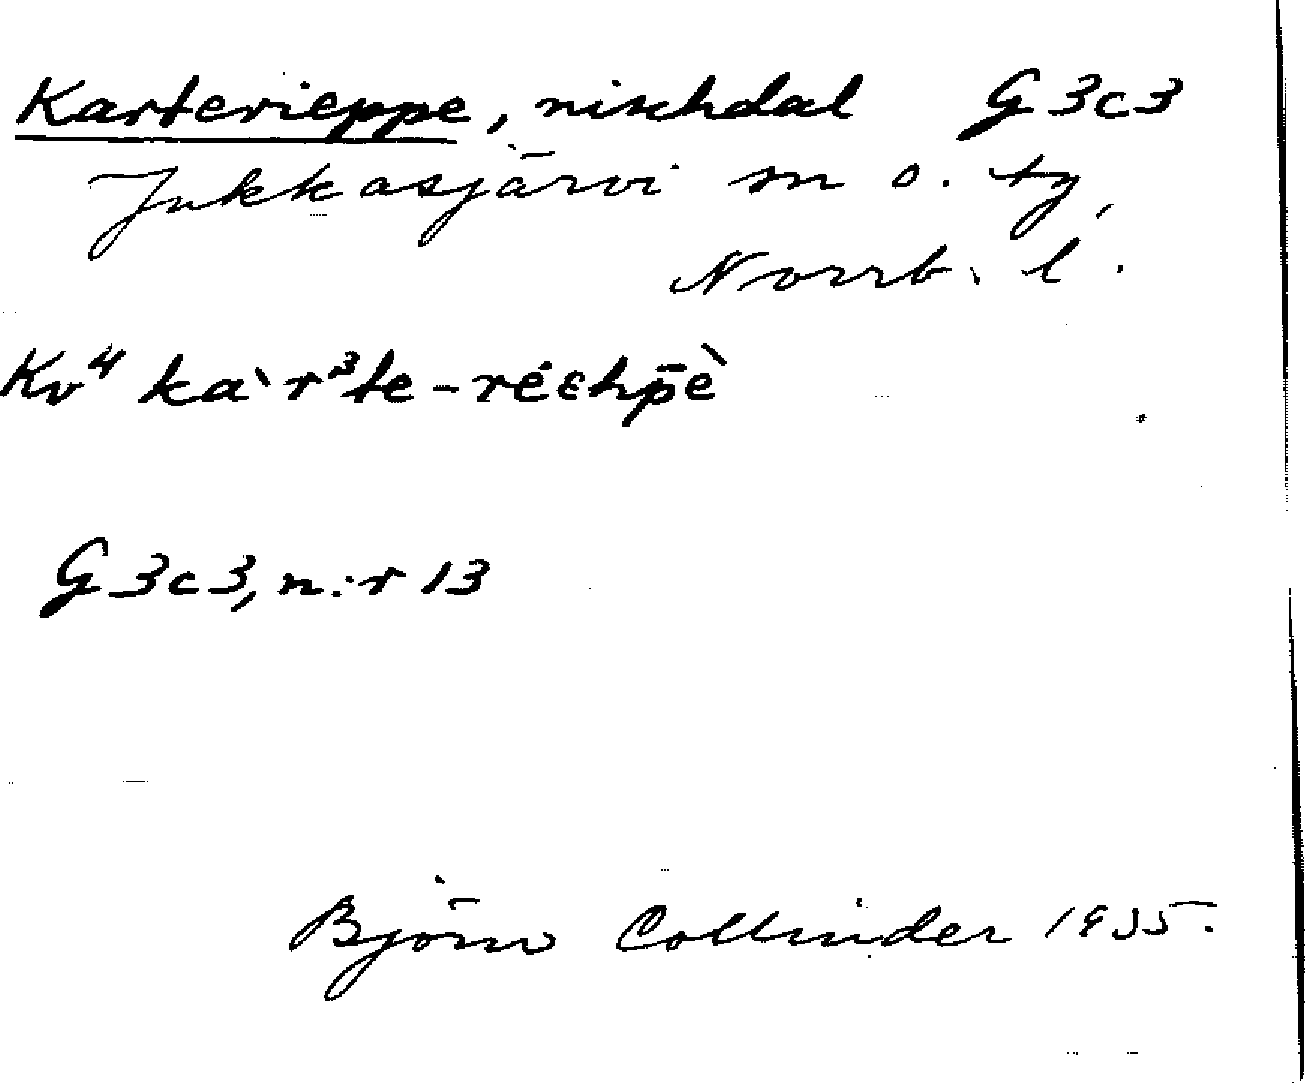 Karterieppe, nischdal G3c3
Jukkasjärvi sn o. tg,
Norrb. l.
Kv⁴ ka`r³te-réɛhp̄è
G3c3, n:r 13
Björn Collinder 1935.